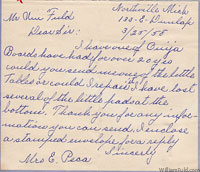 Northville Mich
Mr Wm Fuld 120-E-Dunlap
Dear Sir: 3/25/58
I have one of Ouija
Boards have had for over 20 yrs
could you send me one of the little
tables or could I repair it have lost
several of the little pads at the
bottom. Thank you for any infor-
mation you can send. I enclose
a stamped envelope for a reply
Sincerly
Mrs E.
WilliamFuld.com